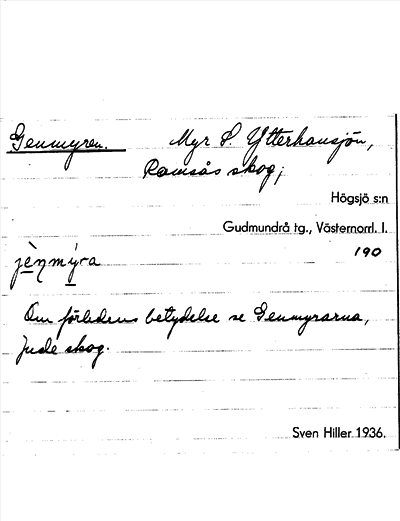 Genmyren. Myr S. Ytterhansjön,
Ramsås skog;
Högsjö s:n
Gudmundrå tg., Västernorrl. l.
190
jènmýra
Om förledens betydelse se Genmyrarna,
Jude skog.
Sven Hiller 1936.